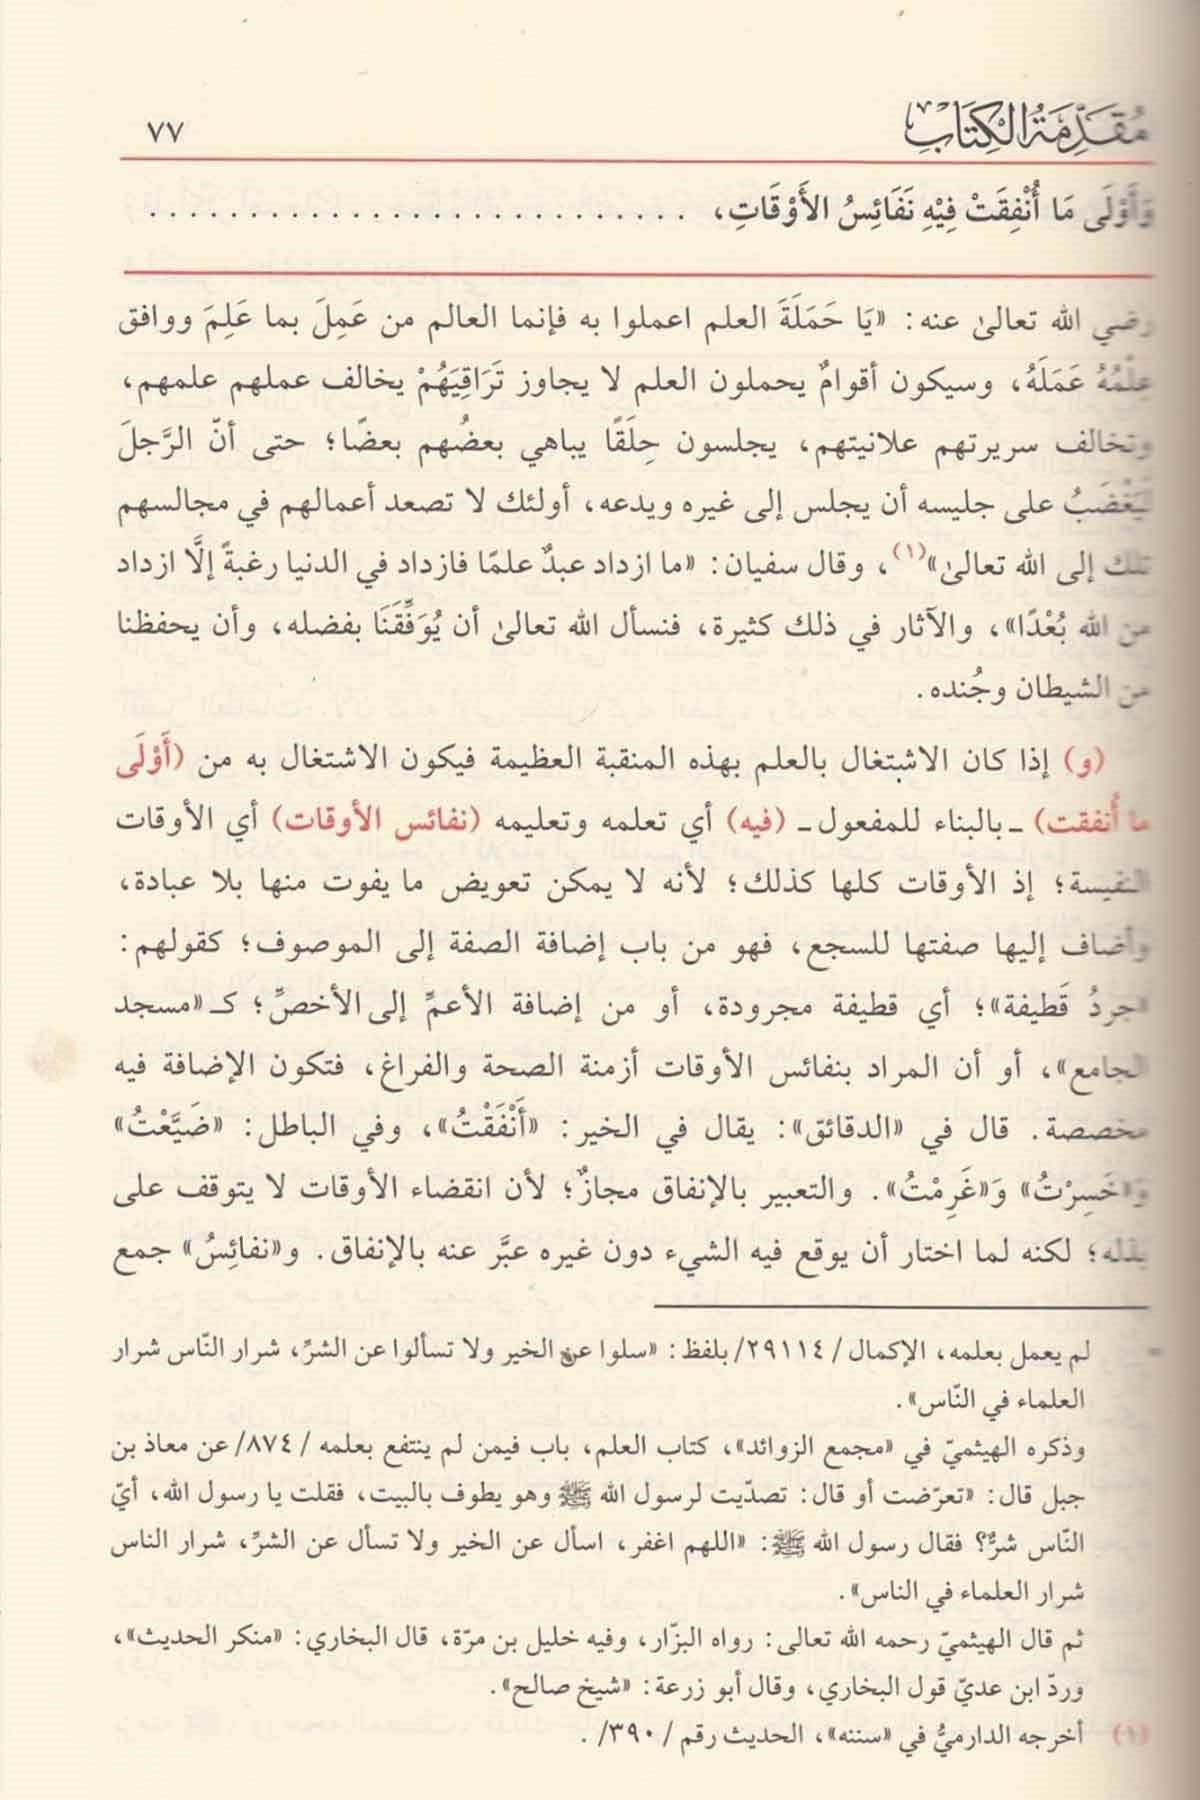 مُقَدِّمَةُ الكِتَابِ
٧٧
وَأَوْلَى مَا أُنْفِقَتْ فِيْهِ نَفَائِسُ الأَوْقَاتِ، . . . . . . . . . . . . . . . . . . . . . . . . . . .
رضي الله تعالىٰ عنه: «يَا حَمَلَةَ العلم اعملوا به فإنما العالم من عَمِلَ بما عَلِمَ ووافق
عِلْمُهُ عَمَلَهُ، وسيكون أقوامٌ يحملون العلم لا يجاوز تَرَاقِيَهُمْ يخالف عملهم علمهم،
وتخالف سريرتهم علانيتهم، يجلسون حِلَقًا يباهي بعضُهم بعضًا؛ حتى أنّ الرَّجلَ
لَيَغْضَبُ على جليسه أن يجلس إلى غيره ويدعه، أولئك لا تصعد أعمالهم في مجالسهم
تلك إلى الله تعالىٰ»(١)، وقال سفيان: «ما ازداد عبدٌ علمًا فازداد في الدنيا رغبةً إلَّا ازداد
من الله بُعْدًا»، والآثار في ذلك كثيرة، فنسأل الله تعالىٰ أن يُوَفِّقَنَا بفضله، وأن يحفظنا
من الشيطان وجُنده.
(و) إذا كان الاشتغال بالعلم بهذه المنقبة العظيمة فيكون الاشتغال به من (أَوْلَى
ما أُنفقت) ـ بالبناء للمفعول ـ (فيه) أي تعلمه وتعليمه (نفائس الأوقات) أي الأوقات
النفيسة؛ إذ الأوقات كلها كذلك؛ لأنه لا يمكن تعويض ما يفوت منها بلا عبادة،
وأضاف إليها صفتها للسجع، فهو من باب إضافة الصفة إلى الموصوف؛ كقولهم:
«جردُ قَطيفة»؛ أي قطيفة مجرودة، أو من إضافة الأعمِّ إلى الأخصِّ؛ كـ «مسجد
الجامع»، أو أن المراد بنفائس الأوقات أزمنة الصحة والفراغ، فتكون الإضافة فيه
مخصصة. قال في «الدقائق»: يقال في الخير: «أَنْفَقْتُ»، وفي الباطل: «ضَيَّعْتُ»
وَ«خَسِرْتُ» وَ«غَرِمْتُ». والتعبير بالإنفاق مجازٌ؛ لأن انقضاء الأوقات لا يتوقف على
بذله؛ لكنه لما اختار أن يوقع فيه الشيء دون غيره عبَّر عنه بالإنفاق. و«نفائِسُ» جمع
= لم يعمل بعلمه، الإكمال / ٢٩١١٤/ بلفظ: «سلوا عن الخير ولا تسألوا عن الشرِّ، شرار النّاس شرار
العلماء في النّاس».
وذكره الهيثميّ في «مجمع الزوائد»، كتاب العلم، باب فيمن لم ينتفع بعلمه / ٨٧٤/ عن معاذ بن
جبل قال: «تعرّضت أو قال: تصدّيت لرسول الله ﷺ وهو يطوف بالبيت، فقلت يا رسول الله، أيّ
النّاس شرٌّ؟ فقال رسول الله ﷺ: «اللهم اغفر، اسأل عن الخير ولا تسأل عن الشرِّ، شرار الناس
شرار العلماء في الناس».
ثم قال الهيثميّ رحمه الله تعالى: رواه البزّار، وفيه خليل بن مرّة، قال البخاري: «منكر الحديث»،
وردّ ابن عديّ قول البخاري، وقال أبو زرعة: «شيخ صالح».
(١) أخرجه الدارميُّ في «سننه»، الحديث رقم / ٣٩٠/ .